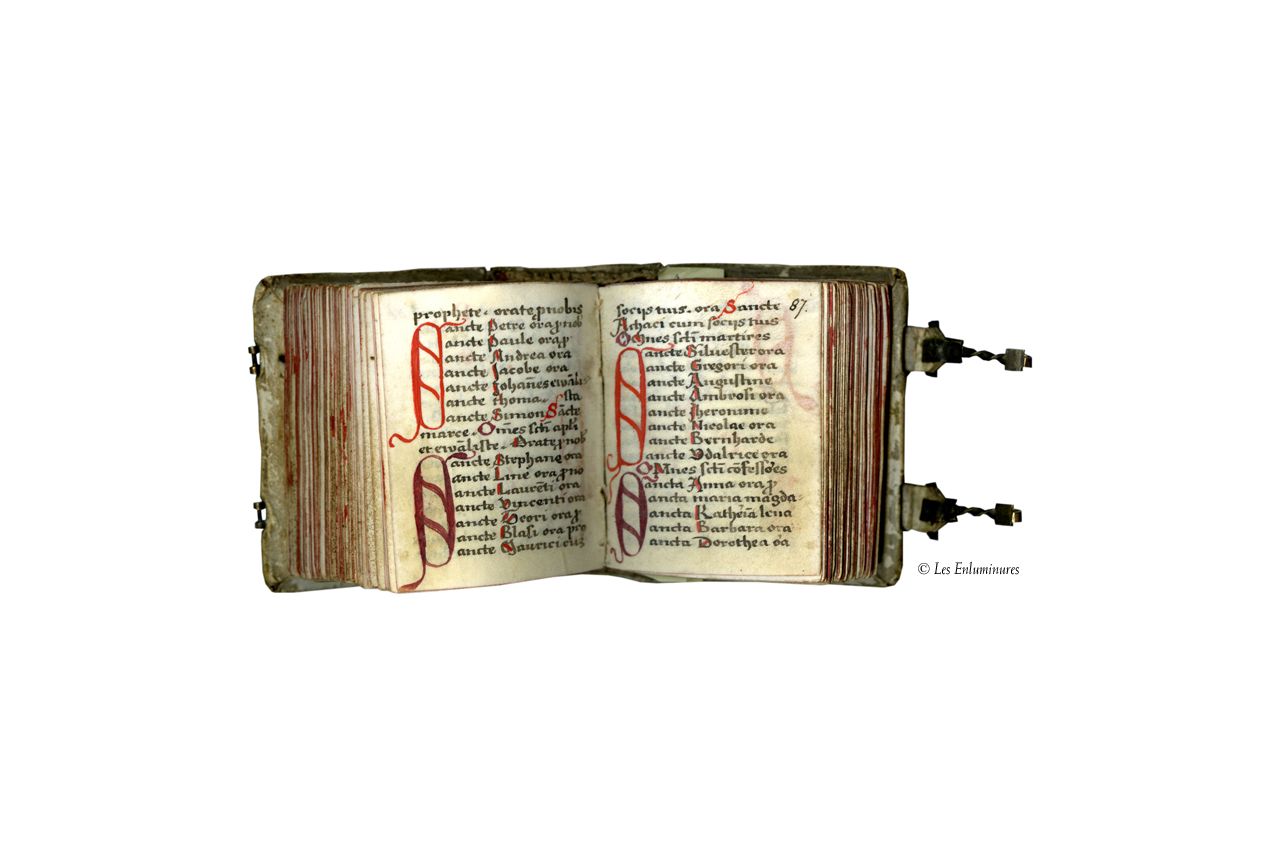 prophete. orate ꝓnobis
Sancte Petre ora ꝓnob
Sancte Paule ora ꝓ
Sancte Andrea ora
Sancte Jacobe ora
Sancte Johan̄es ewālis
Sancte thoma. Sta
Sancte Simon Sācte
marce. Om̄es sct̄i apl̄i
et ewāliste. Orate ꝓnob
Sancte Stephane ora
Sancte Line ora ꝓno
Sancte Laurēti ora
Sancte Vincenti ora
Sancte Jeori ora ꝓ
Sancte Blasi ora pro
Sancte Maurici cuz
socijs tuis. ora Sancte 87.
Achaci cum socijs tuis
Omnes sct̄i martires
Sancte Siluester ora
Sancte Gregori ora
Sancte Augustine
Sancte Ambrosi ora
Sancte Jheronimo
Sancte Nicolae ora
Sancte Bernharde
Sancte Vdalrice ora
OMnes sct̄i cōfessōes
Sancta Anna ora ꝓ
Sancta maria magda-
Sancta Katherīa lena
Sancta Barbara ora
Sancta Dorothea oa
© Les Enluminures